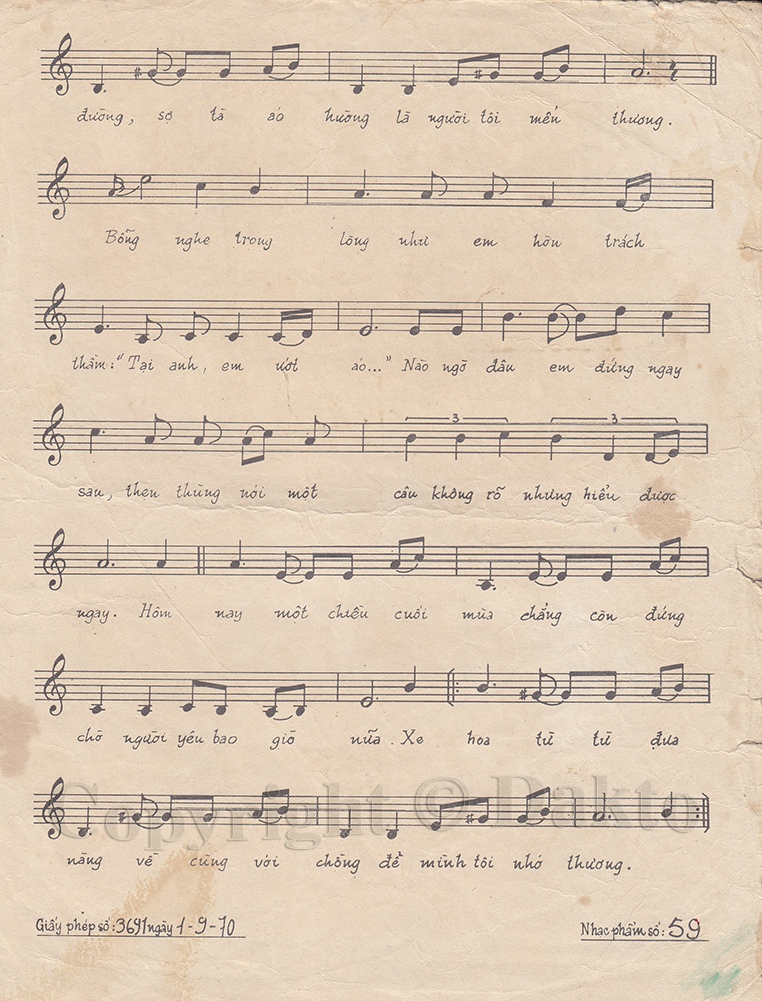 đường, sợ tà áo hường là người tôi mến thương.
Bỗng nghe trong lòng như em hờn trách
thầm: "Tại anh, em ướt áo..." Nào ngờ đâu em đứng ngay
3 3
sau, thẹn thùng nói một câu không rõ nhưng hiểu được
ngay. Hôm nay một chiều cuối mùa chẳng còn đứng
chờ người yêu bao giờ nữa. Xe hoa từ từ đưa
Copyright © Dakto
nàng về cùng với chồng để mình tôi nhớ thương.
Giấy phép số: 3691 ngày 1-9-70
Nhạc phẩm số: 59